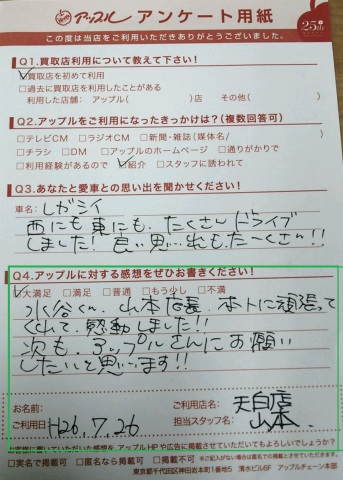 アップル アンケート用紙
25th
この度は当店をご利用いただきありがとうございました。
Q1.買取店利用について教えて下さい!
☑買取店を初めて利用
□過去に買取店を利用したことがある
利用した店舗: アップル( )店 その他( )
Q2.アップルをご利用になったきっかけは?(複数回答可)
□テレビCM □ラジオCM □新聞・雑誌(媒体名/ )
□チラシ □DM □アップルのホームページ □通りがかりで
□利用経験があるので ☑紹介 □スタッフに誘われて
Q3.あなたと愛車との思い出を聞かせください!
車名: レガシイ
西にも東にも、たくさんドライブ
しました! 良い思い出もたーくさん!!
Q4.アップルに対する感想をぜひお書きください!
☑大満足 □満足 □普通 □もう少し □不満
水谷くん、山本店長、ホントに頑張って
くれて、感動しました!!
次も、アップルさんにお願い
したいと思います!!
お名前:
ご利用店名: 天白店
ご利用日: H26.7.26
担当スタッフ名: 山本.
お客様に書いていただいた感想を アップルHPや広告に掲載させていただいてもよろしいでしょうか?
□実名で掲載可 □匿名なら掲載可 □掲載不可 ※ご記入がない場合は匿名での掲載とさせていただきます。
東京都千代田区神田岩本町1番地5 清水ビル6F アップルチェーン本部